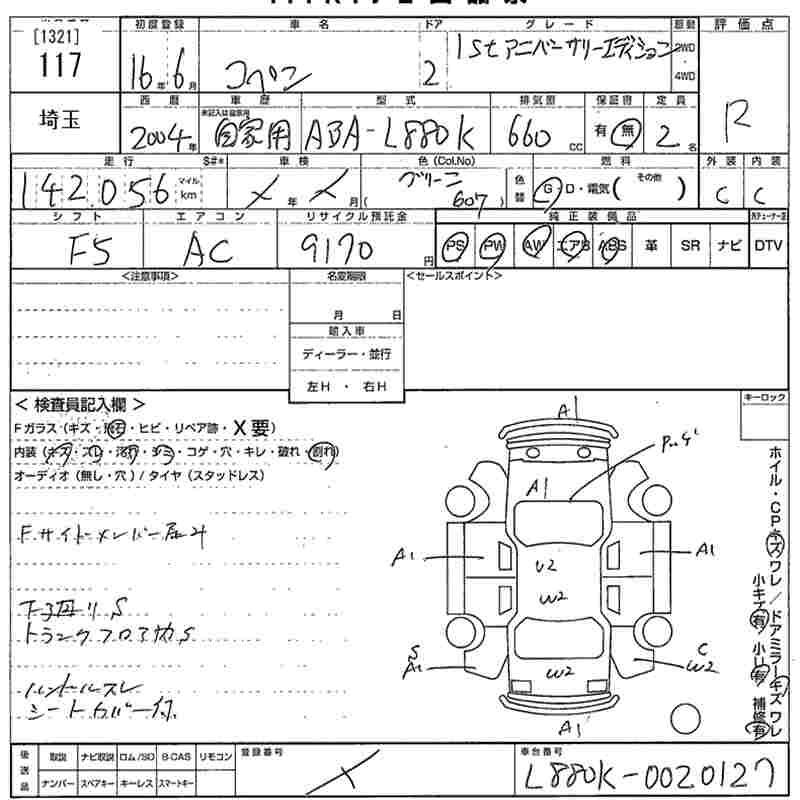 [1321]
117
初度登録 車名 ドア グレード 駆動 評価点
16年6月 コペン 2 1stアニバーサリーエディション 2WD 4WD
R
埼玉
西暦 車歴 型式 排気量 保証書 定員
未記入は自家用
2004年 自家用 ABA-L880K 660cc 有・無 2名
走行 S#* 車検 色(Col.No) 燃料 外装 内装
142.056 マイル km 年 月 グリーン 607 色替 G・D・電気( その他 ) C C
シフト エアコン リサイクル預託金 純正装備品
F5 AC 9170円 PS PW AW エアB ABS 革 SR ナビ DTV
<注意事項> 名変期限 <セールスポイント>
月 日
輸入車
ディーラー・並行
左H ・ 右H
<検査員記入欄> キーロック
Fガラス(キズ・飛石・ヒビ・リペア跡・X要)
内装(キズ・スレ・汚れ・シミ・コゲ・穴・キレ・破れ・割れ)
オーディオ(無し・穴)/タイヤ(スタッドレス)
F.サイドメンバー
トランクフロア
ハンドルスレ
シートカバー付
A1
A1
A1 A1
U2
W2
S A1 C W2
W2
A1
ホイル・CPキズワレ/ドアミラーキズワレ
小キズ有 小凹有 補修有
後送品 取説 ナビ取説 ロム/SD B-CAS リモコン 登録番号 車台番号
ナンバー スペアキー キーレス スマートキー
L880K-0020127